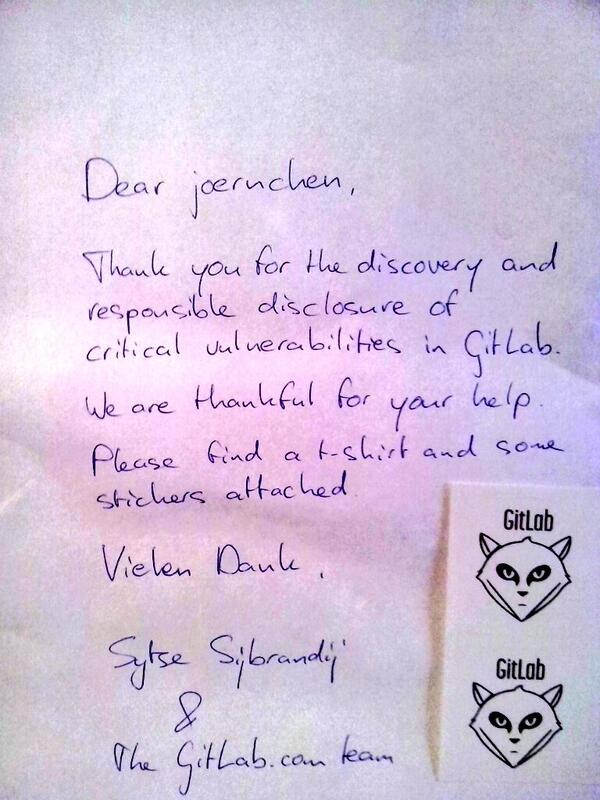 Dear joernchen,
Thank you for the discovery and
responsible disclosure of
critical vulnerabilities in GitLab.
We are thankful for your help.
Please find a t-shirt and some
stickers attached.
Vielen Dank,
Sytse Sijbrandij
&
The GitLab.com team
GitLab
GitLab